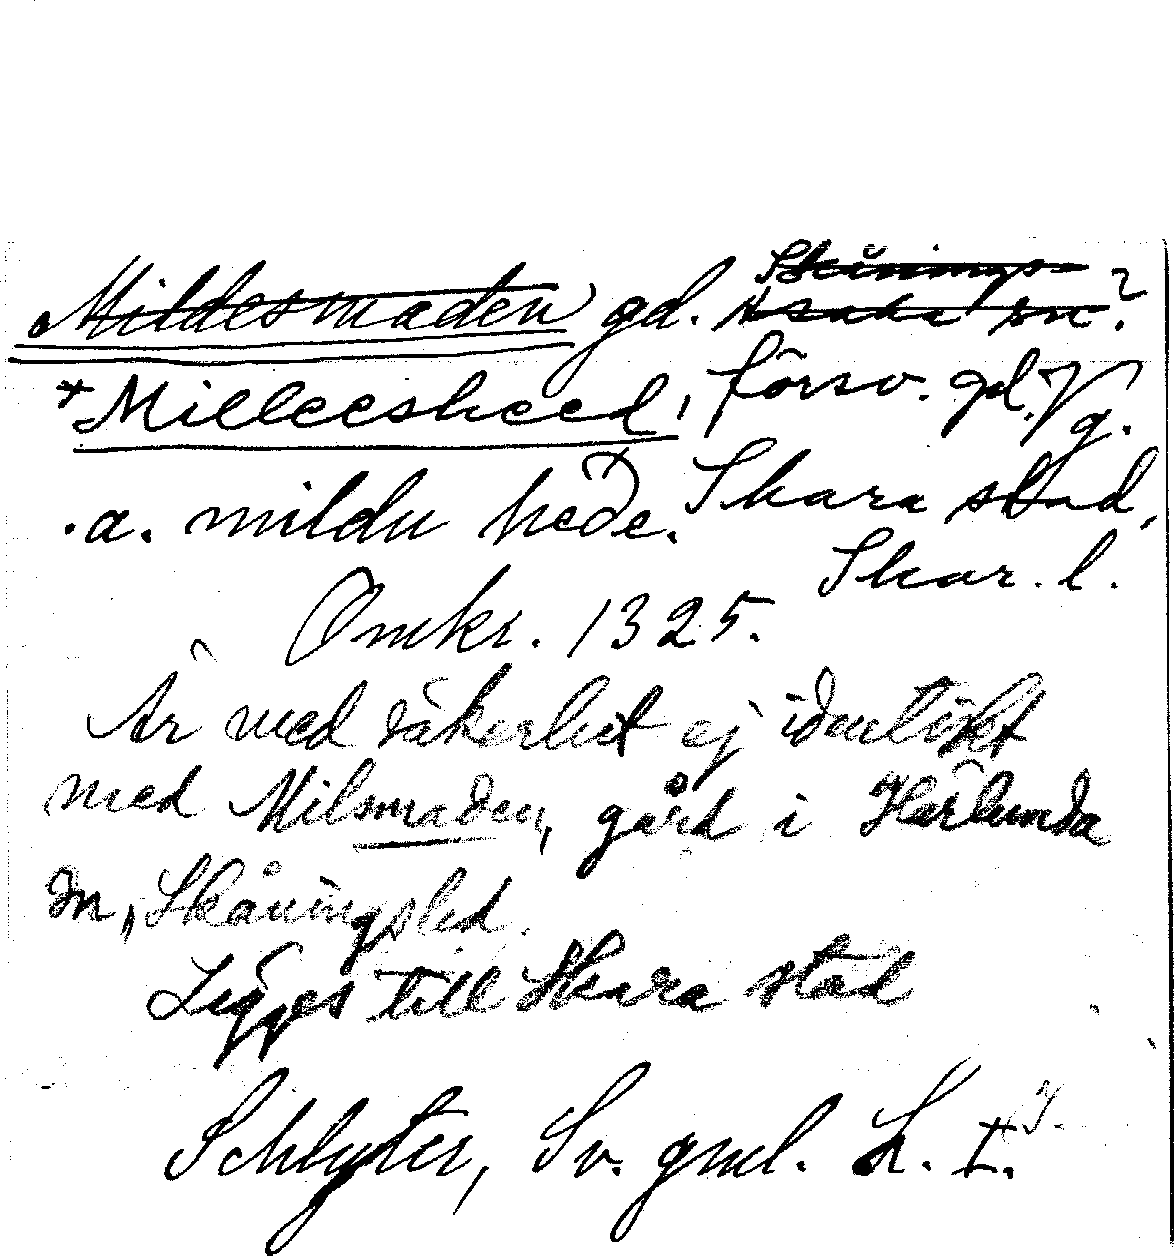 Mildesmaden gd. Skånings-
Asaka sn?
*Milleesheed, försv. gd. Vg.
.a. mildu heðe. Skara stad,
Skar. l.
Omkr. 1325.
Är med säkerhet ej identiskt
med Milsmaden, gård i Härlunda
sn, Skånings hd.
Lägges till Skara stad
Schlyter, Sv. gml. L. I.